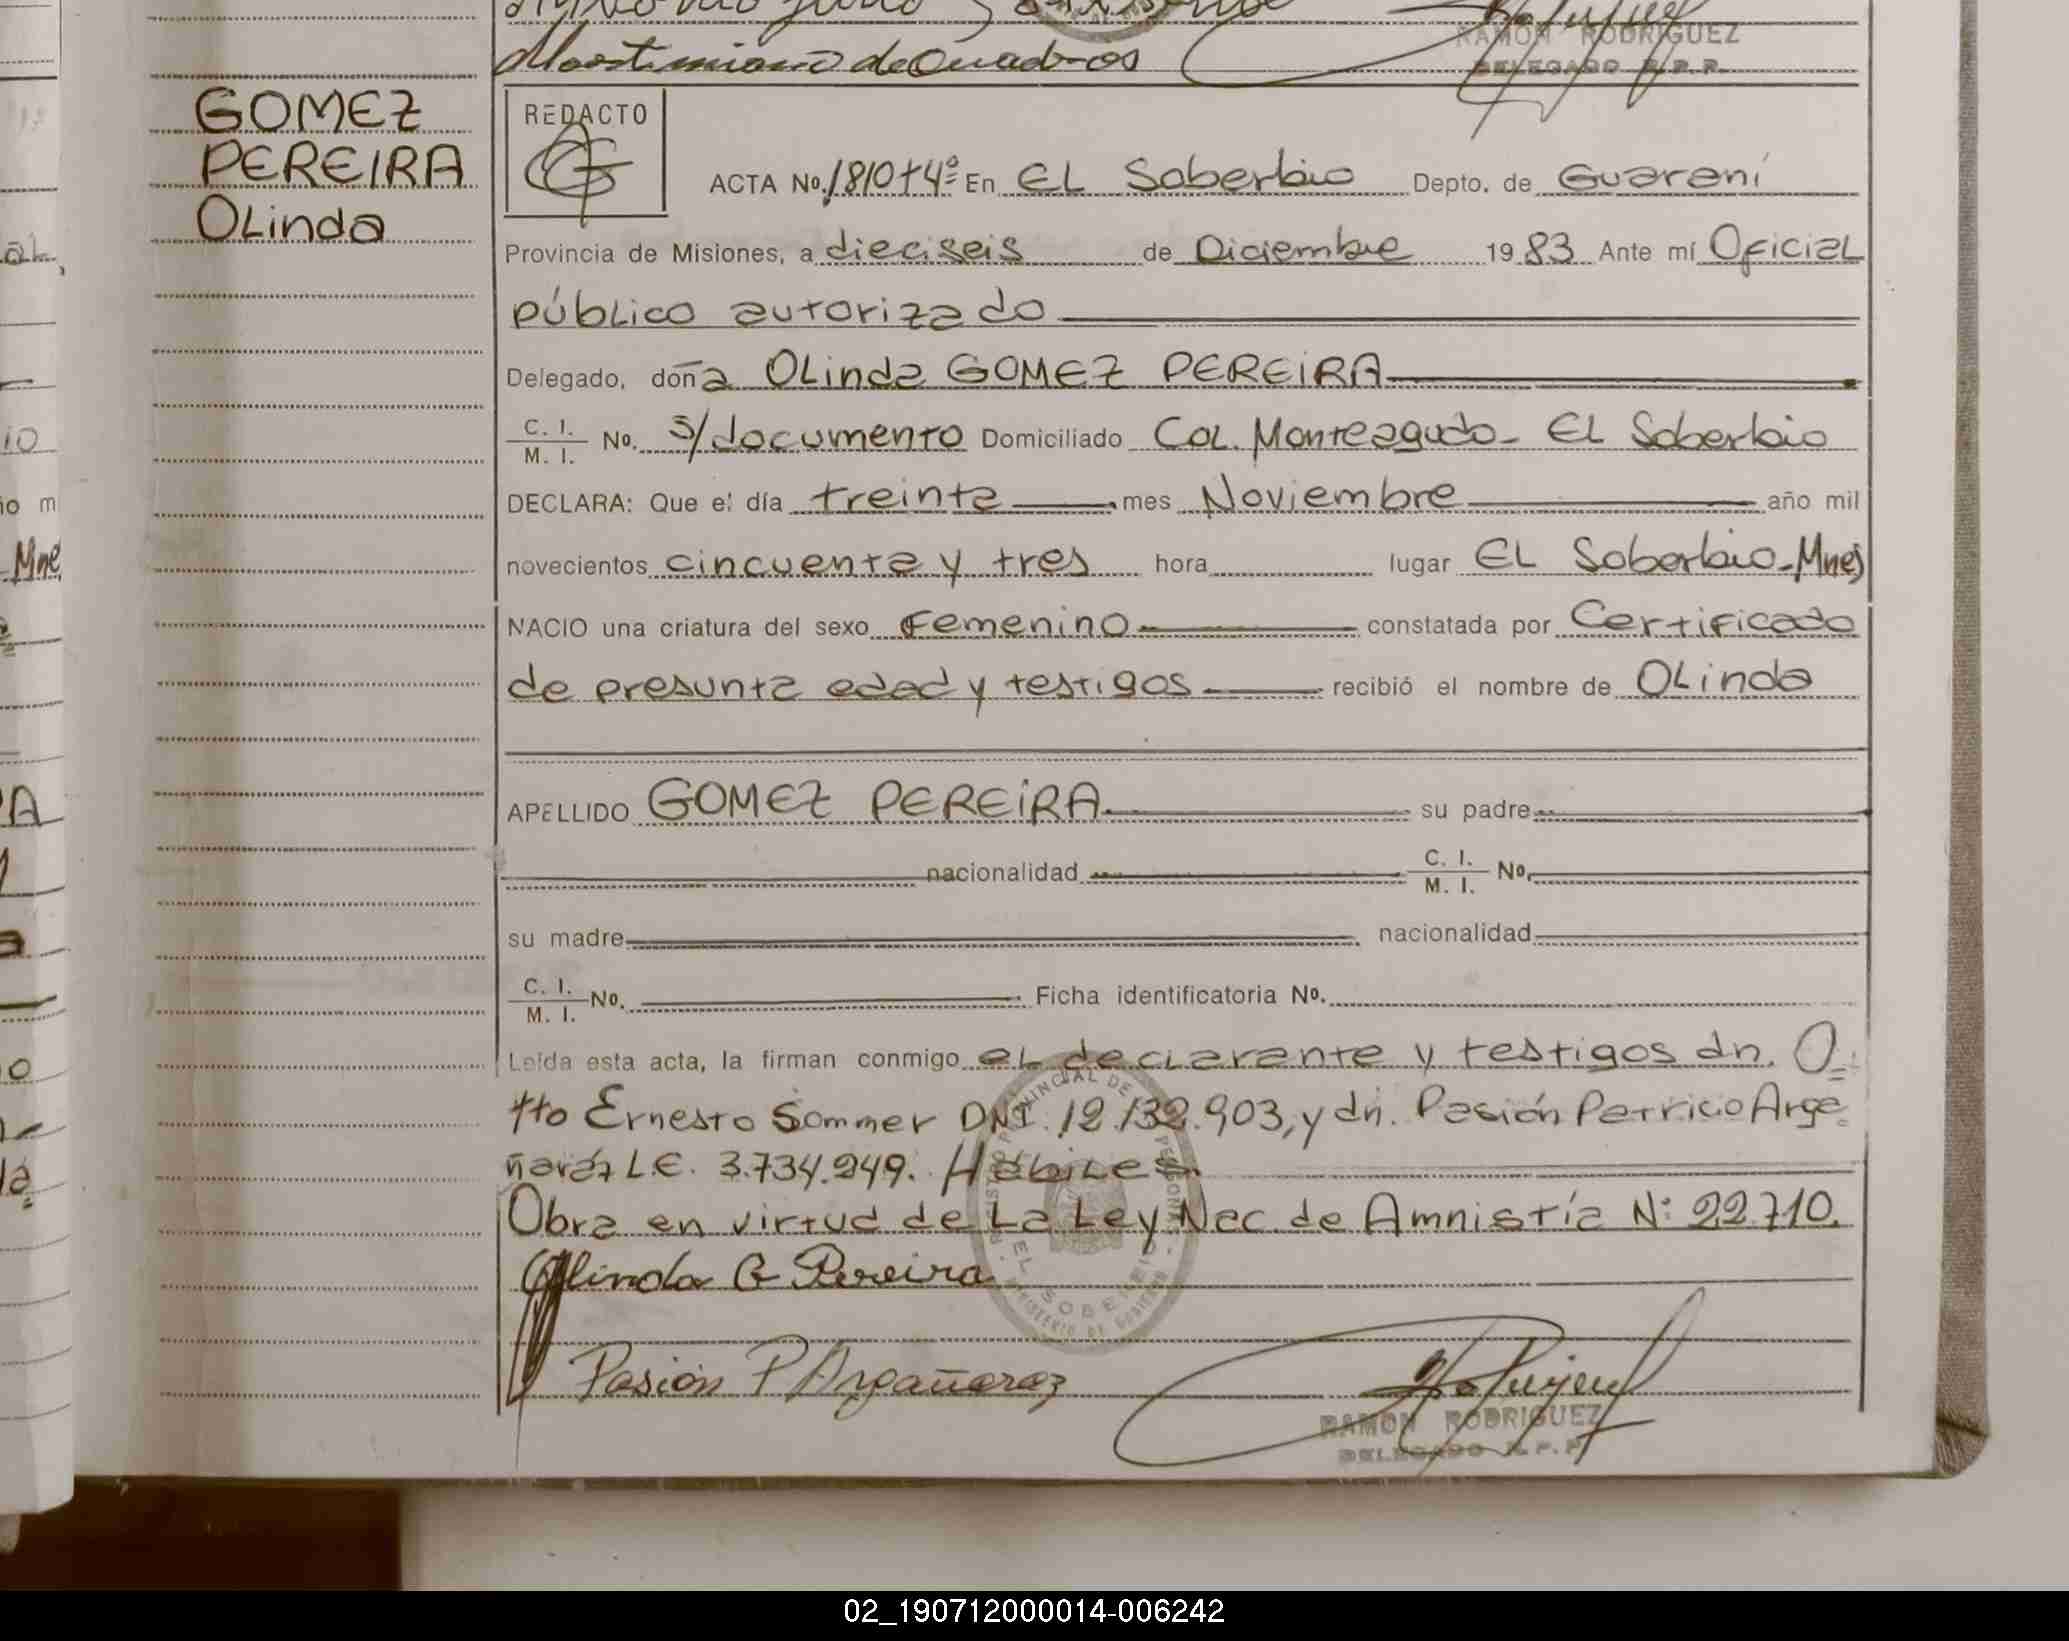 Maartimiano de Quadros
RAMON RODRIGUEZ
DELEGADO R.P.P.
GOMEZ
PEREIRA
OLinda
REDACTO
ACTA No. 1810 t 4º En EL Soberbio Depto. de Guaraní
Provincia de Misiones, a dieciseis de Diciembre 1983 Ante mí Oficial
público autorizado
Delegado, doña OLinda GOMEZ PEREIRA
C. I. / M. I. No. s/documento Domiciliado Col. Monteagudo - EL Soberbio
DECLARA: Que el día treinta mes Noviembre año mil
novecientos cincuenta y tres hora lugar EL Soberbio-Mnes
NACIO una criatura del sexo Femenino constatada por Certificado
de presunta edad y testigos recibió el nombre de OLinda
APELLIDO GOMEZ PEREIRA su padre
nacionalidad C. I. / M. I. No.
su madre nacionalidad
C. I. / M. I. No. Ficha identificatoria No.
Leída esta acta, la firman conmigo el declarante y testigos dn. O=
tto Ernesto Sommer DNI. 12.132.903, y dn. Pasión Patricio Arga=
ñaráz L.E. 3.734.249. Hábiles.
Obra en virtud de La Ley Nac. de Amnistía Nº 22.710.
Olinda G Pereira
Pasión P Argañaraz
RAMON RODRIGUEZ
DELEGADO R.P.P.
02_190712000014-006242